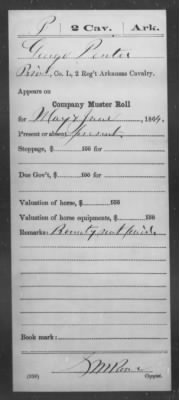 P | 2 Cav. | Ark.
George Penter
Pvt., Co. L, 2 Reg't Arkansas Cavalry.
Appears on
Company Muster Roll
for May & June, 1864.
Present or absent present
Stoppage, $ 100 for
Due Gov't, $ 100 for
Valuation of horse, $ 100
Valuation of horse equipments, $ 100
Remarks: Bounty not paid
Book mark:
(358) Copyist.